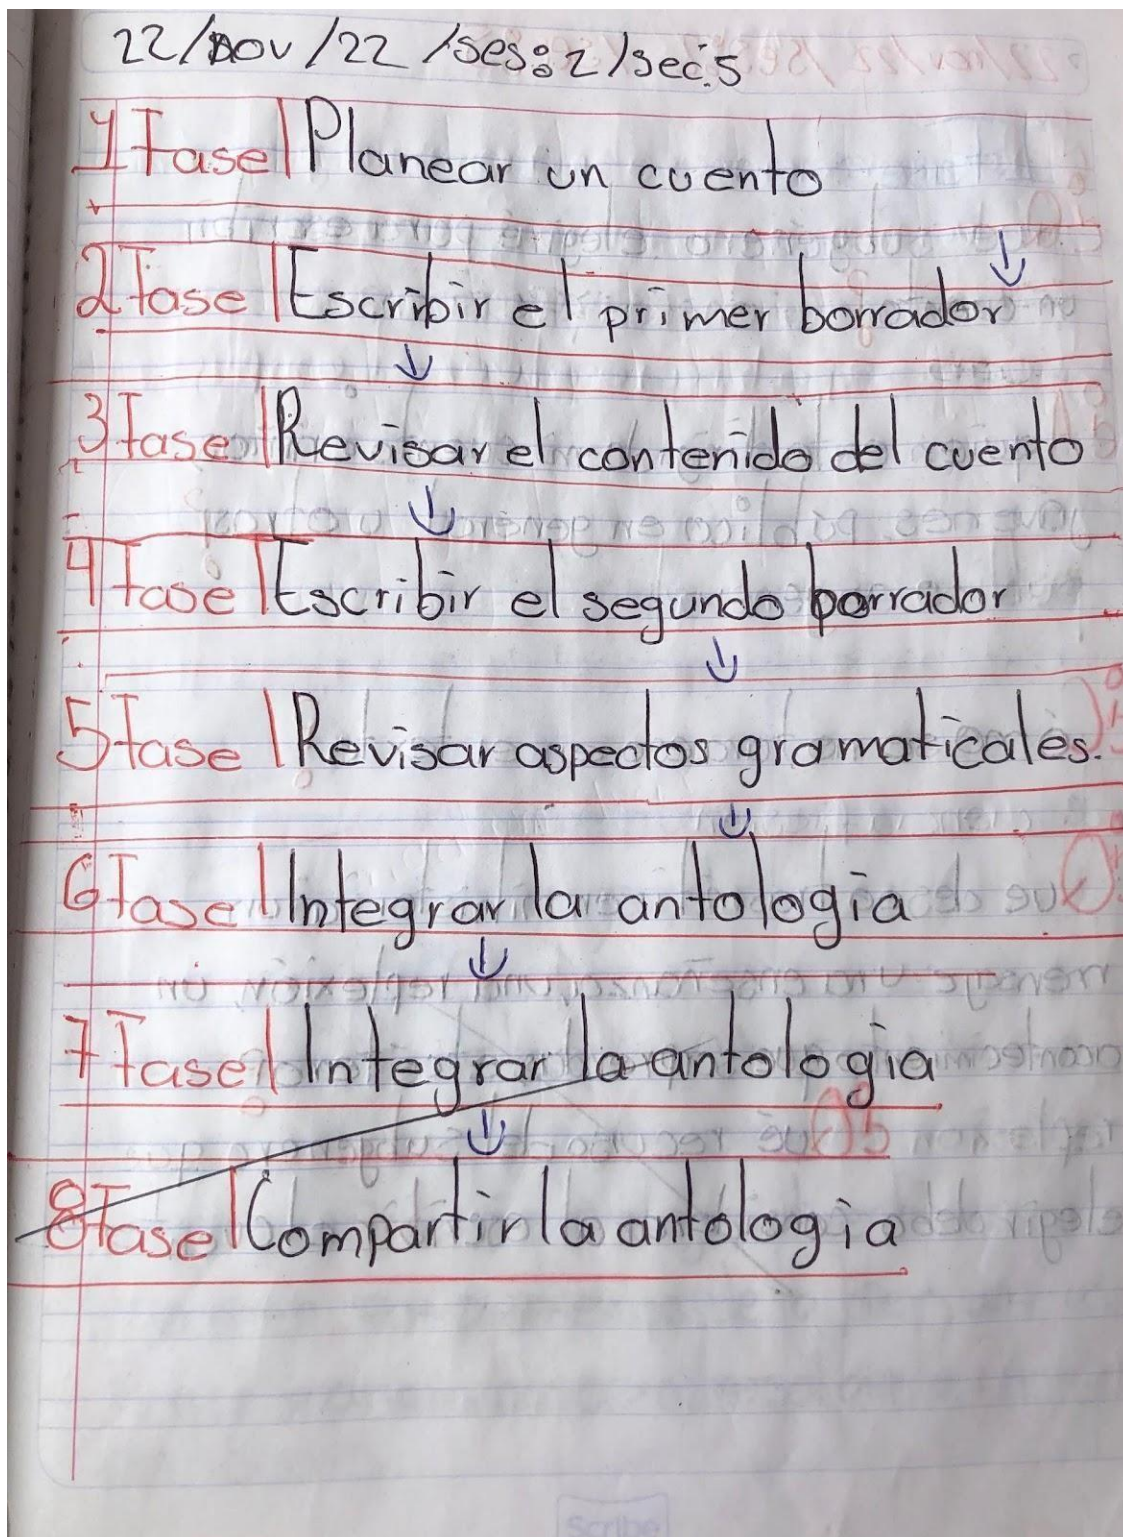 22/nov/22 /ses: 2/sec.5
1 Fase | Planear un cuento
2 Fase | Escribir el primer borrador
3 Fase | Revisar el contenido del cuento
4 Fase | Escribir el segundo borrador
5 Fase | Revisar aspectos gramaticales.
6 Fase | Integrar la antologia
7 Fase | Integrar la antologia
8 Fase | Compartir la antologia
Scribe